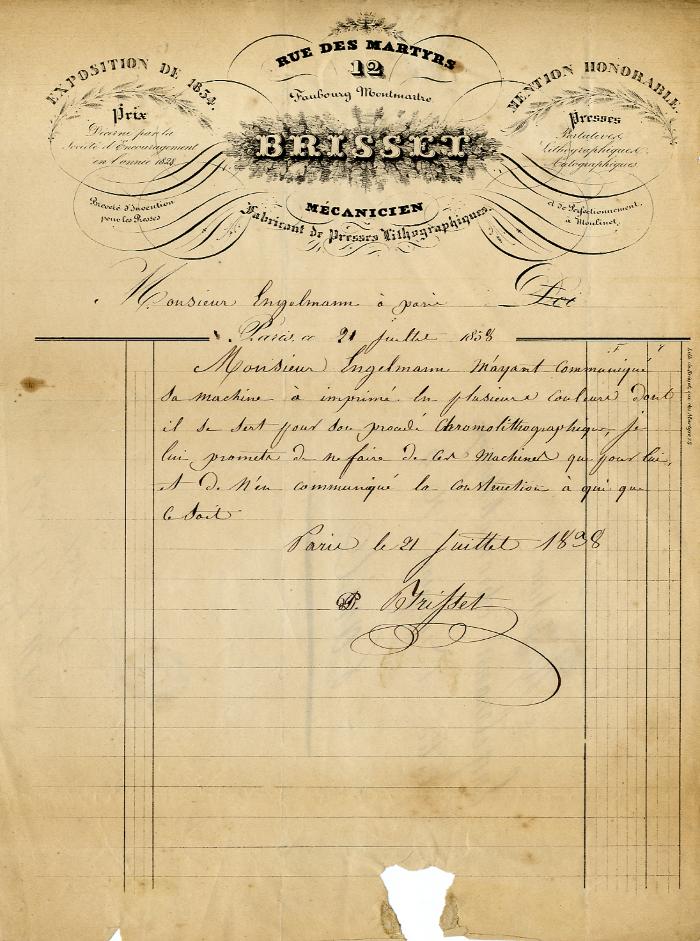 RUE DES MARTYRS
12
Faubourg Montmartre
EXPOSITION DE 1834.
Prix
Décerné par la
Société d'Encouragement
en l'année 1828
MENTION HONORABLE.
Presses
Portatives
Lithographiques
Autographiques
BRISSET
Breveté d'Invention
pour les Presses
MÉCANICIEN
et de Perfectionnement,
à Moulinet,
Fabricant de Presses Lithographiques.
Monsieur Engelmann à paris Doi
Paris, ce 21 juillet 1838
F C
Monsieur Engelmann m'ayant communiqué
sa machine à imprimé en plusieurs couleurs dont
il se sert pour son procédé Chromolithographique, je
lui promets de ne faire de ces Machines que pour lui,
et de n'en communiqué la construction à qui que
ce soit
Paris le 21 Juillet 1838
P. Brisset